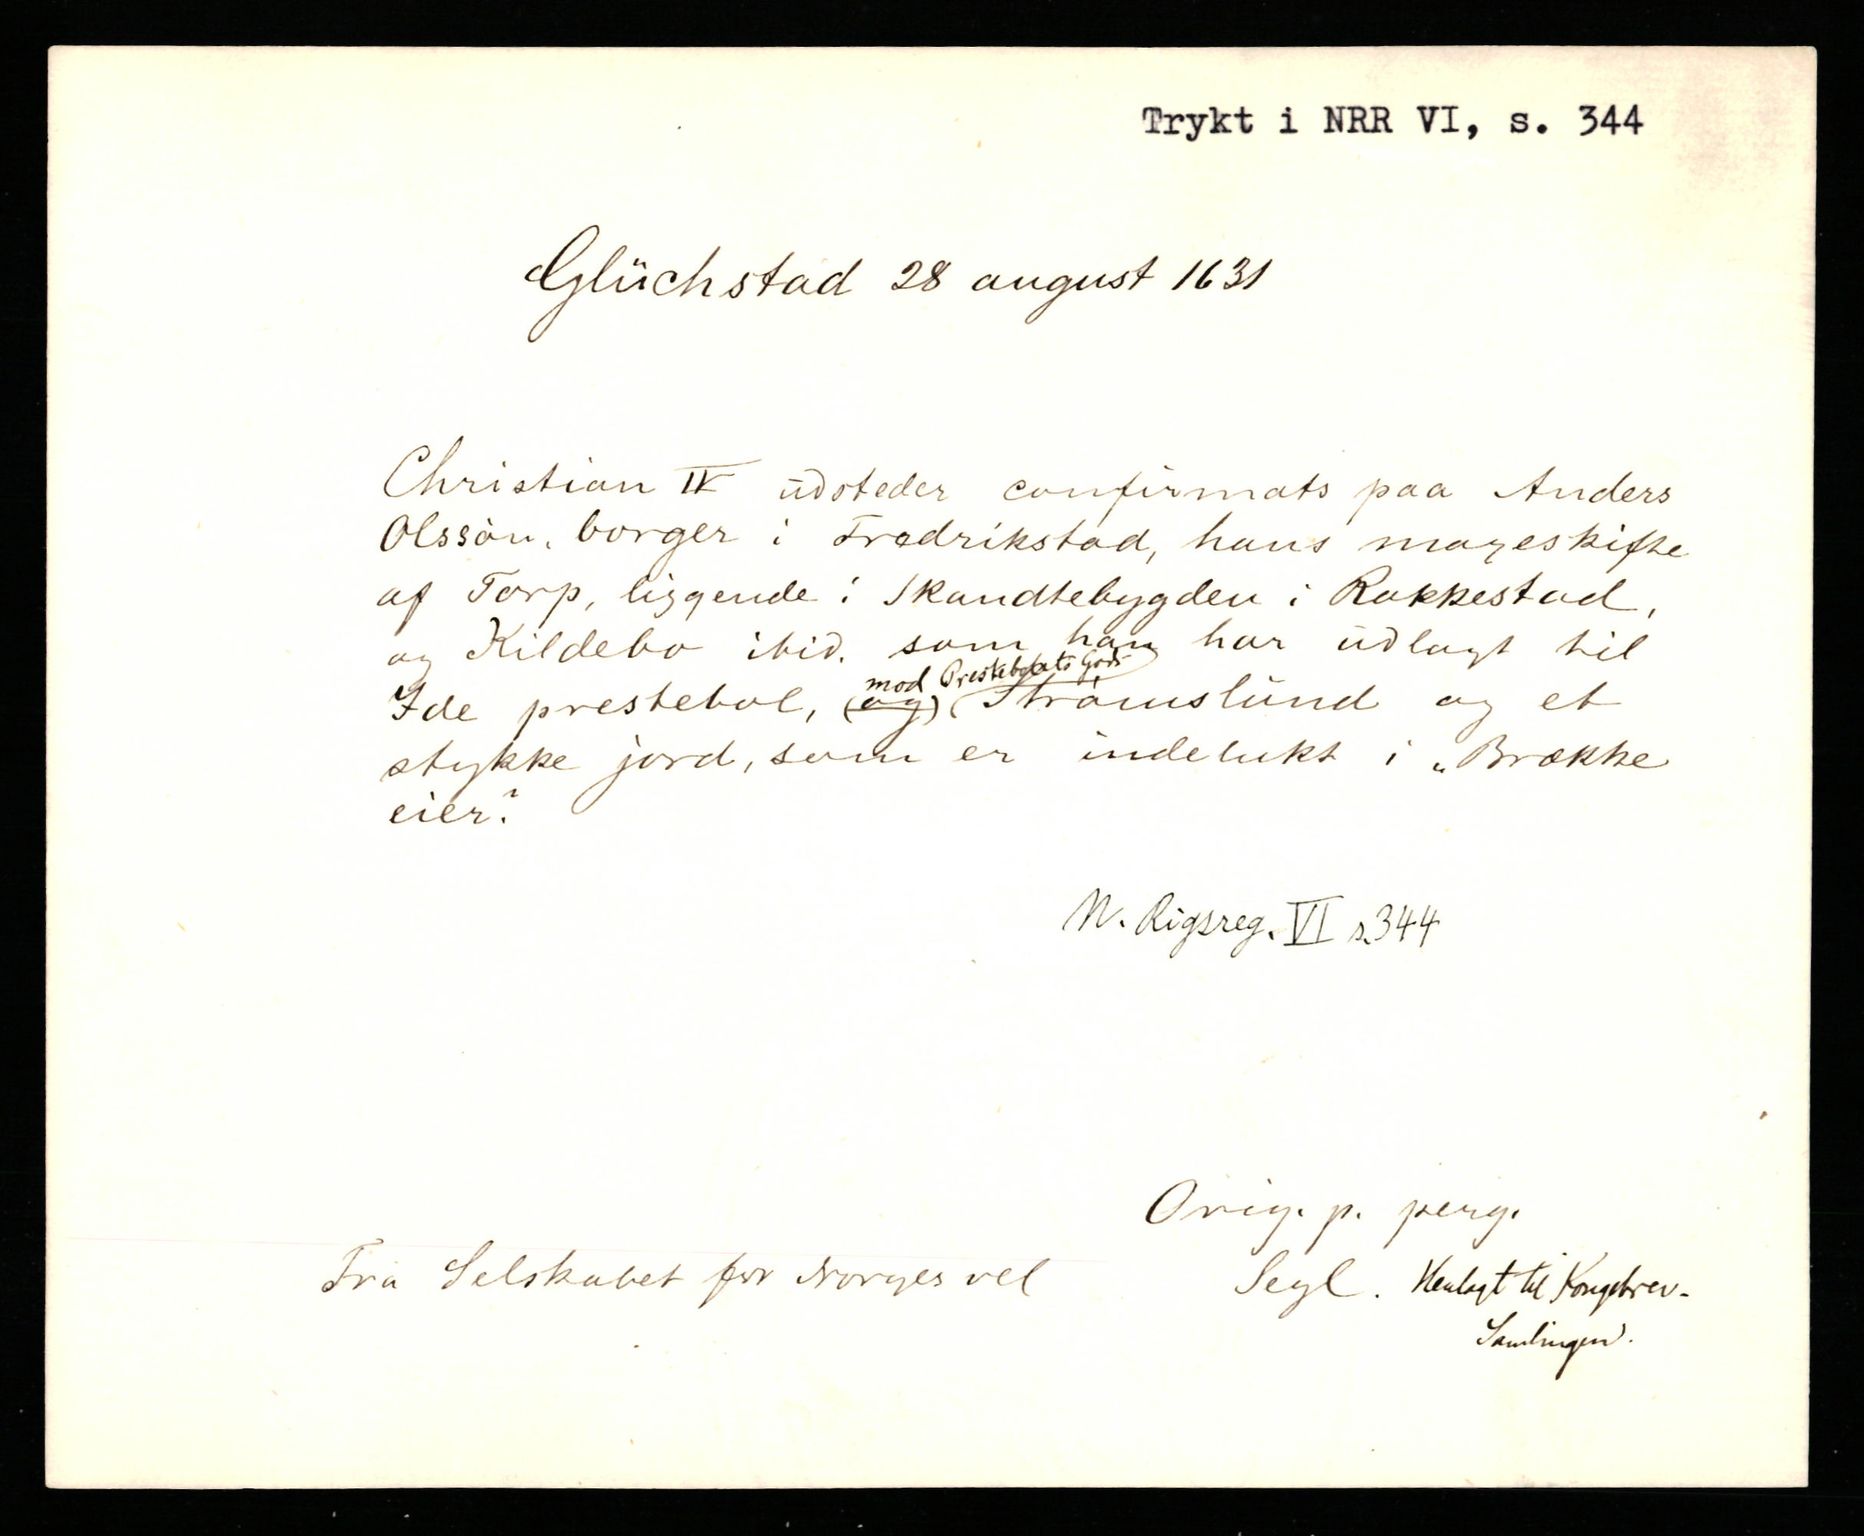 Trykt i NRR VI, s. 344
Glüchstad 28 august 1631
Christian IV udsteder confirmats paa Anders
Olssøn, borger i Fredrikstad, hans mageskifte
af Torp, liggende i Skandtebygden i Rakkestad,
og Kildebo ibid. som han har udlagt til
mod Prestebolets Gods
Ide prestebol, (og) Strømslund og et
stykke jord, som er indelukt i „Brække
eier."
N. Rigsreg. VI s. 344
Orig. p. perg.
Fra Selskabet for Norges vel
Segl. Henlagt til Kongebrev-
Samlingen.